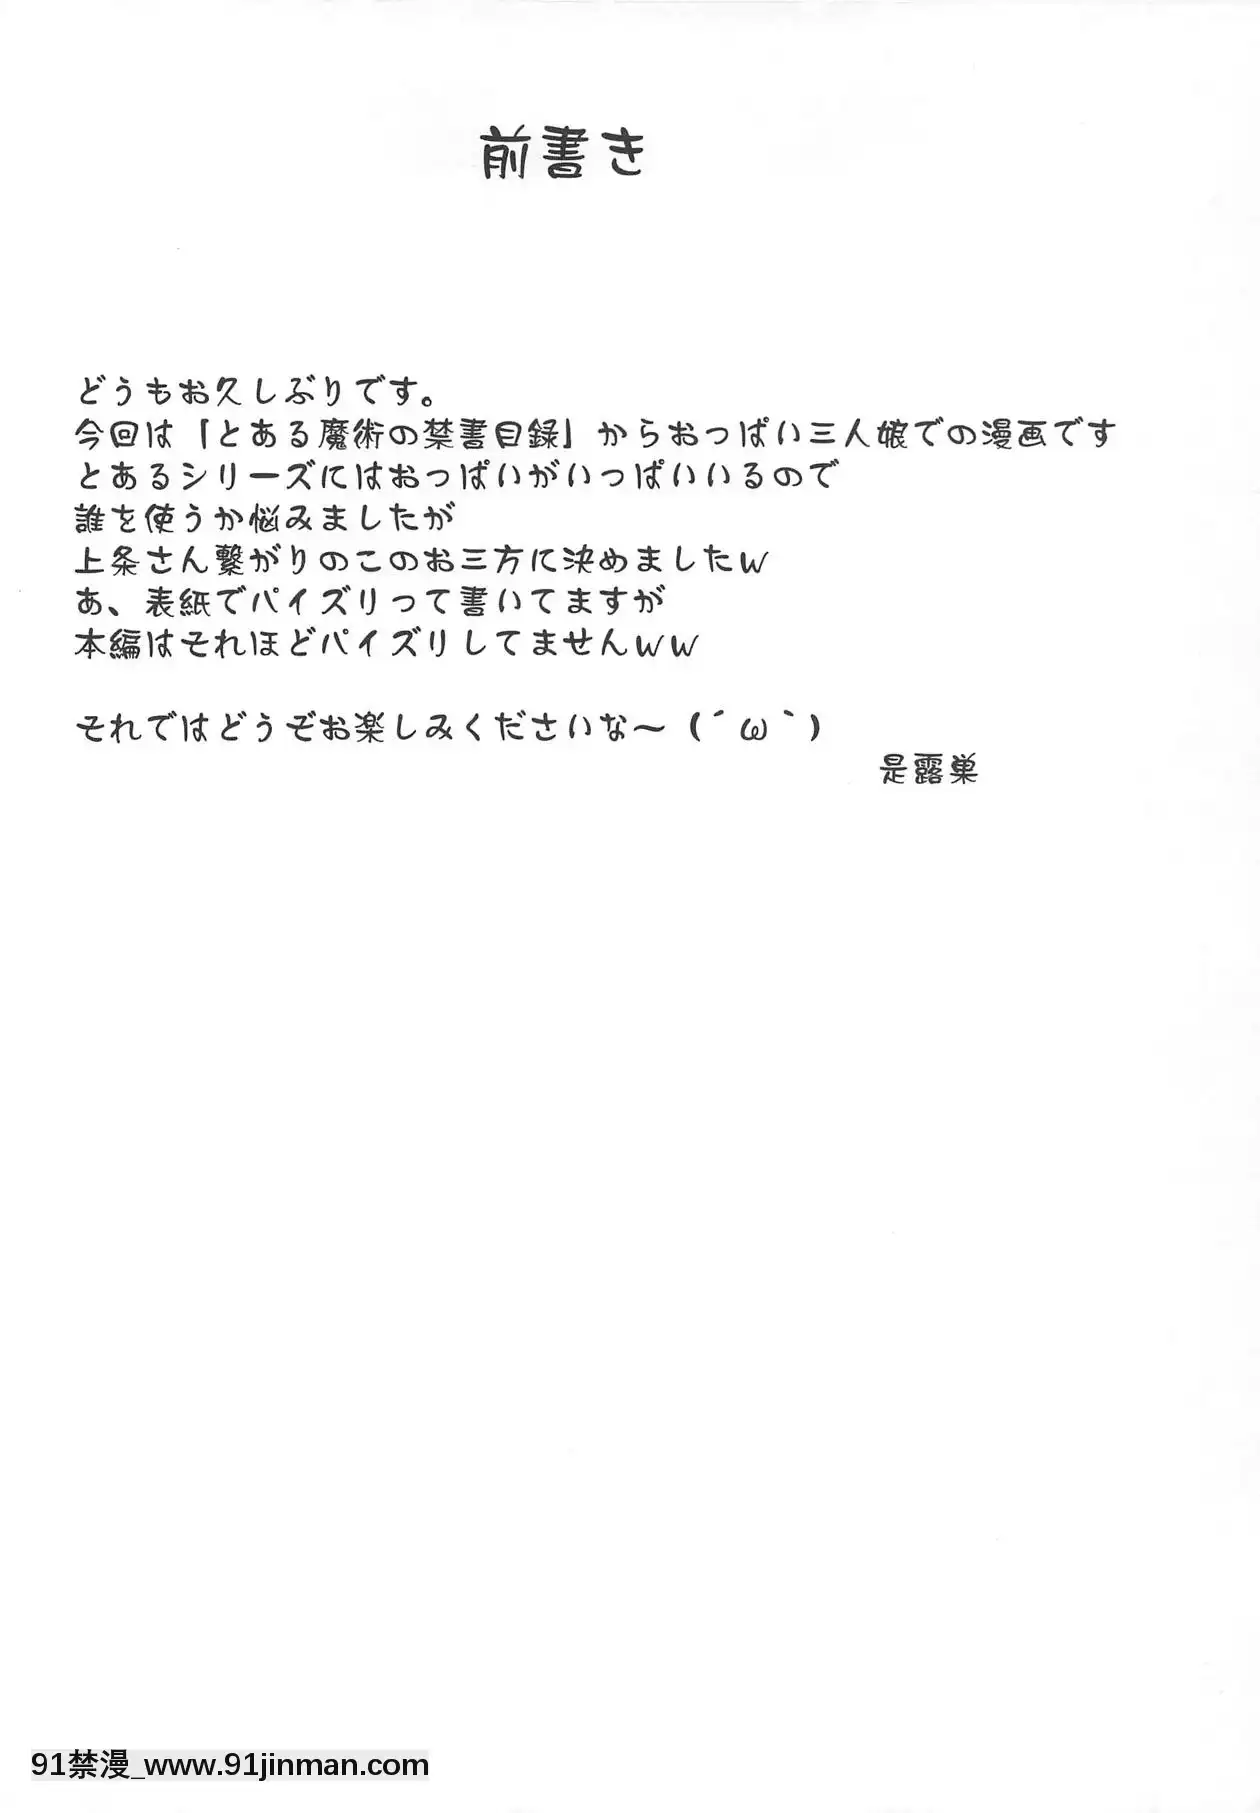 前書き
どうもお久しぶりです。
今回は「とある魔術の禁書目録」からおっぱい三人娘での漫画です
とあるシリーズにはおっぱいがいっぱいいるので
誰を使うか悩みましたが
上条さん繋がりのこのお三方に決めましたw
あ、表紙でパイズリって書いてますが
本編はそれほどパイズリしてませんww
それではどうぞお楽しみくださいな～（´ω｀）
是露巣
91禁漫_www.91jinman.com